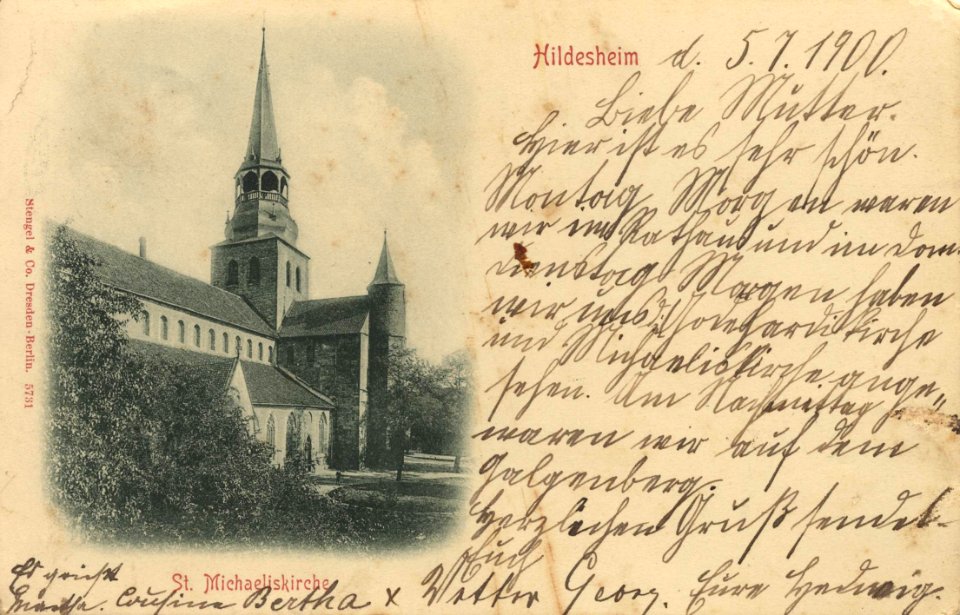 Hildesheim d. 5.7.1900.
Liebe Mutter.
Hier ist es sehr schön.
Montag Morgen waren
wir im Rathaus und im Dom.
Dienstag Morgen haben
wir uns d. Godehardikirche
und Michaeliskirche ange„
sehen. Am Nachmittag
waren wir auf dem
Galgenberg.
Herzlichen Gruß sendet
Euch
Eure Hedwig.
Es grüßt
Martha. Cousine Bertha x Vetter Georg.
St. Michaeliskirche
Stengel & Co. Dresden-Berlin. 5731